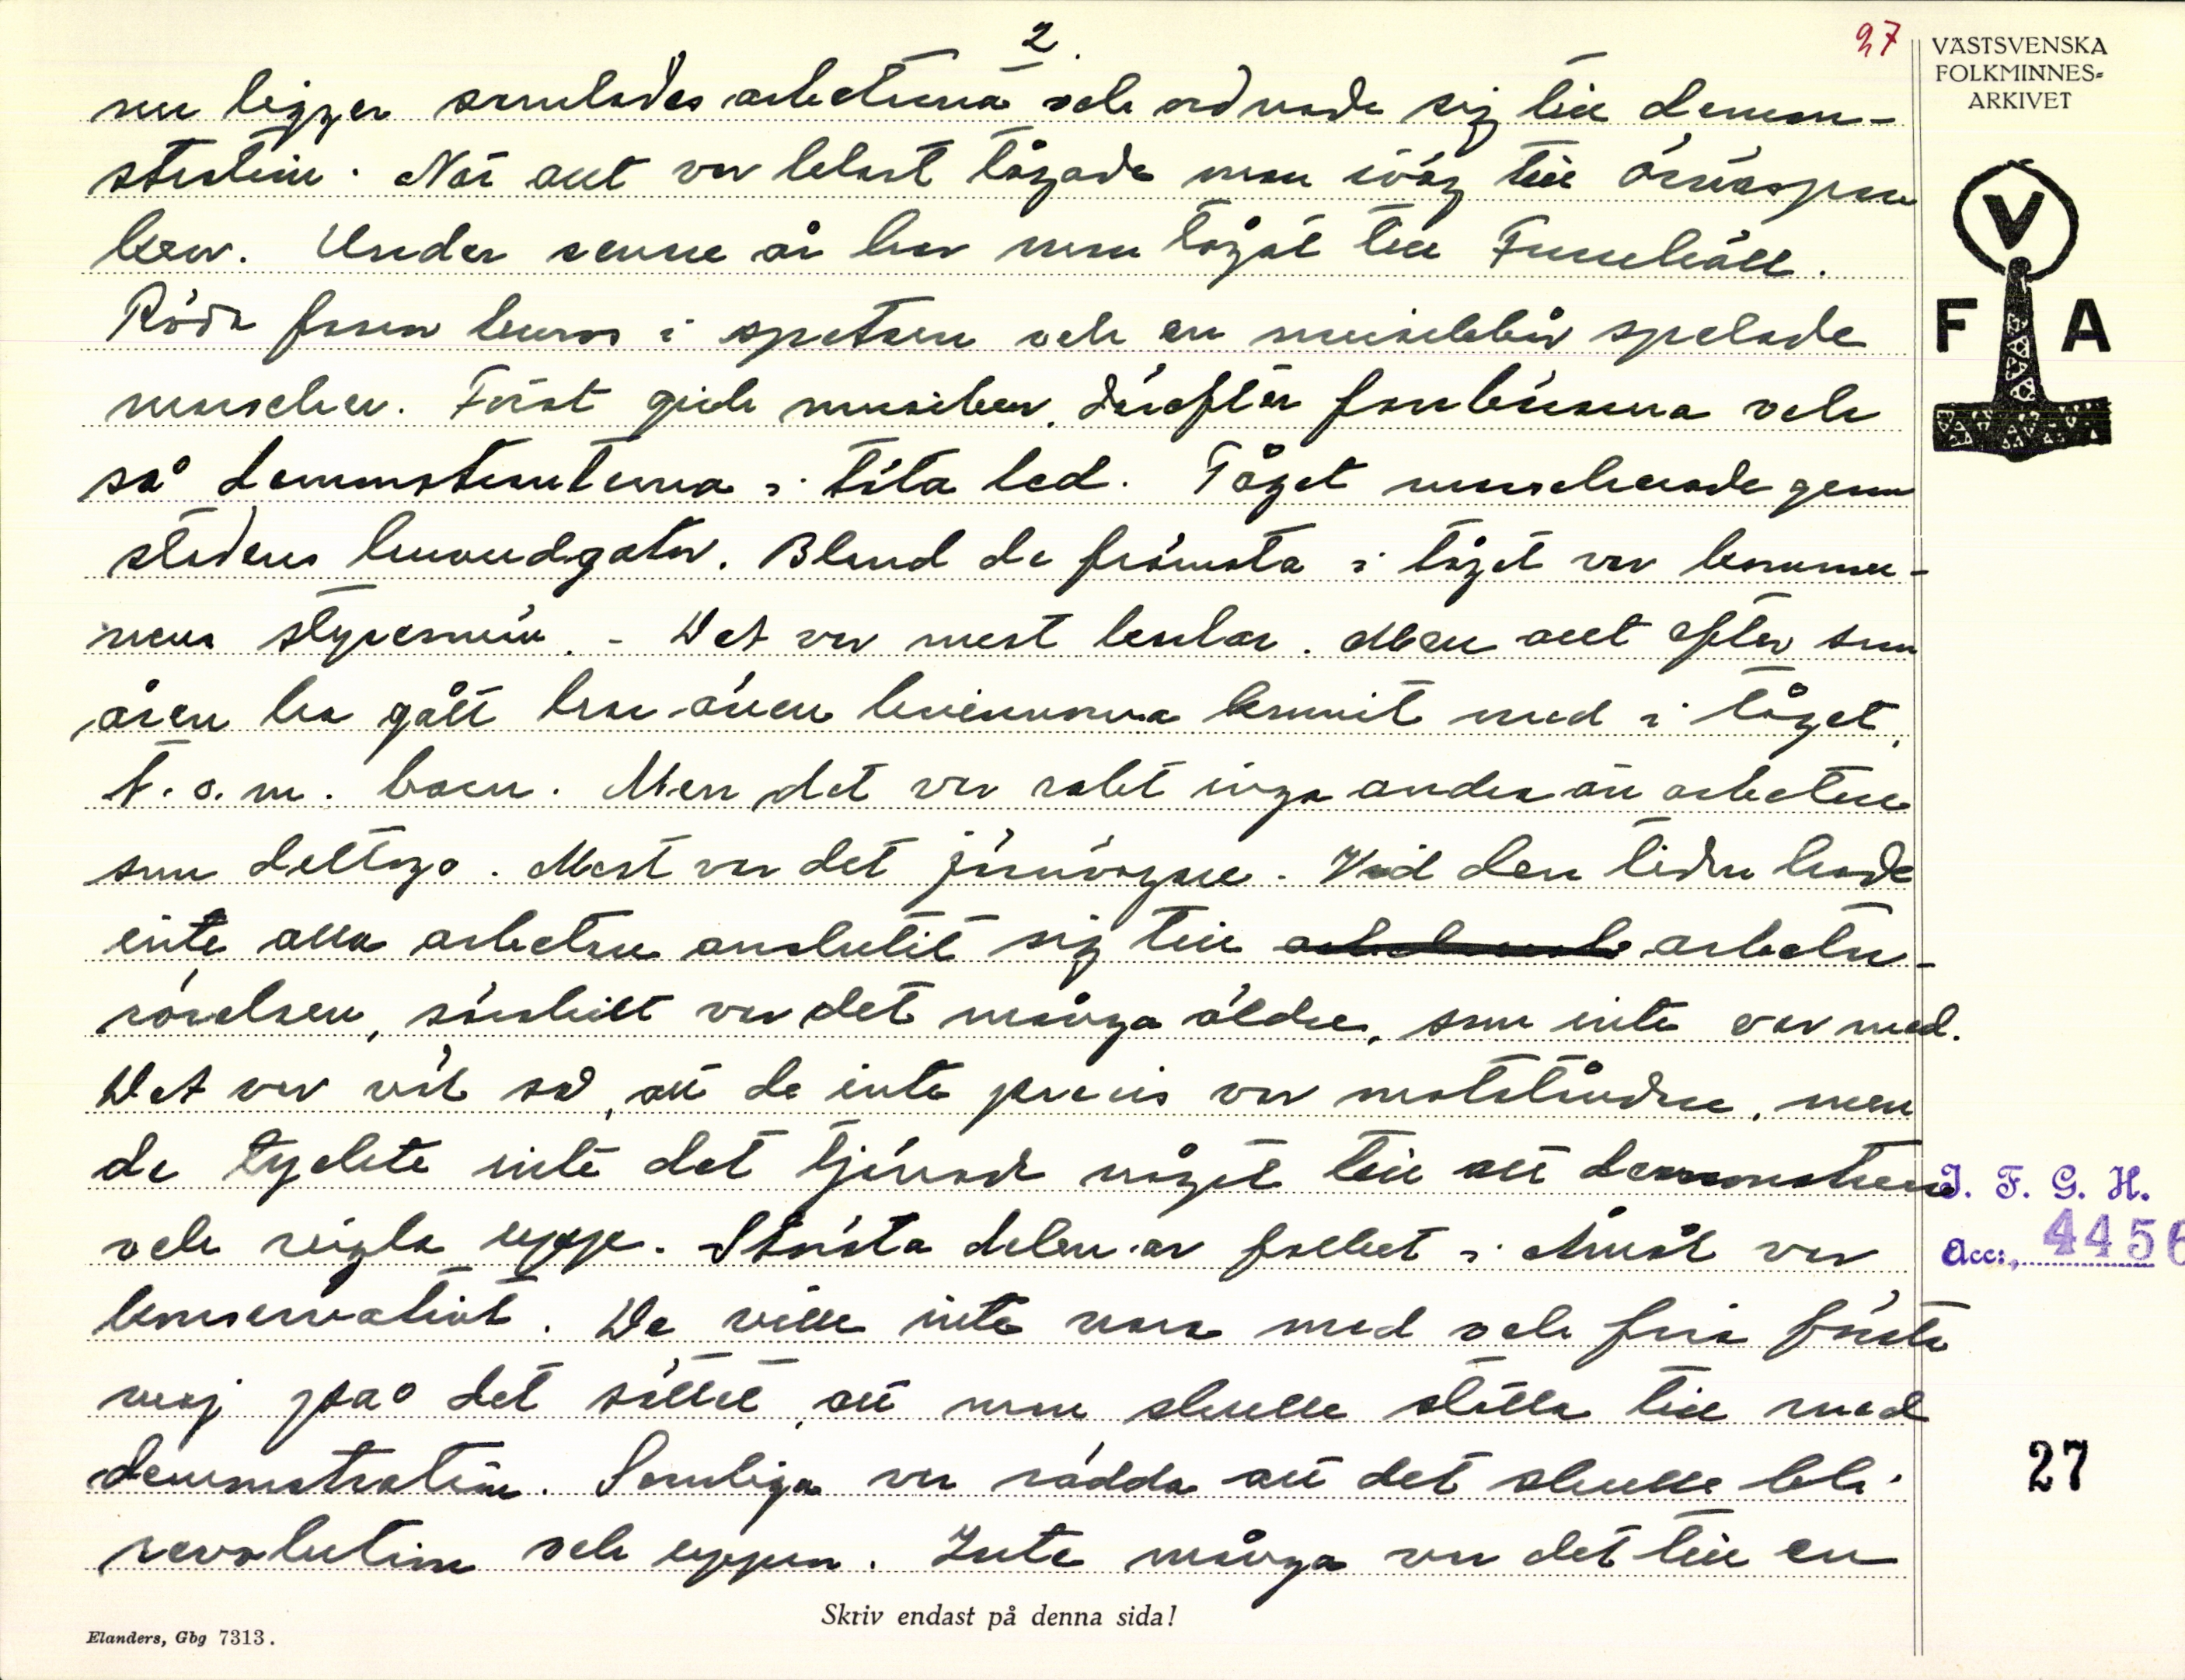 2.
27
VÄSTSVENSKA
FOLKMINNES-
ARKIVET
nu ligger samlades arbetarna och ordnade sig till demon-
stration. När allt var klart tågade man iväg till Örnäspar
ken. Under senare år har man tågat till
V
F A
Röda fanan buros i spetsen och en musikkår spelade
marscher. Först gick musiken, därefter fanbärarna och
så demonstranterna i täta led. Tåget marscherade genom
stadens huvudgator. Bland de främsta i tåget var kommu-
nens styresmän. - Det var mest karlar. Men allt efter som
åren ha gått har även kvinnorna kommit med i tåget,
t.o.m. barn. Men det var rakt inga andra än arbetare
som deltogo. Mest var det järnvägare. Vid den tiden hade
inte alla arbetare anslutit sig till arbetar-
rörelsen, särskilt var det många äldre, som inte var med.
Det var väl så, att de inte precis var motståndare, men
de tyckte inte det tjänade något till att demonstrera
J. F. G. H.
och regla uppe. Största delen av folket i Åmål var
Acc: 4456
konservativt. De ville inte vara med och fira första
maj på det sättet, att man skulle ställa till med
demonstration. Somliga var rädda att det skulle bli
27
revolution och uppror. Inte många var det till en
Skriv endast på denna sida!
Elanders, Gbg 7313.